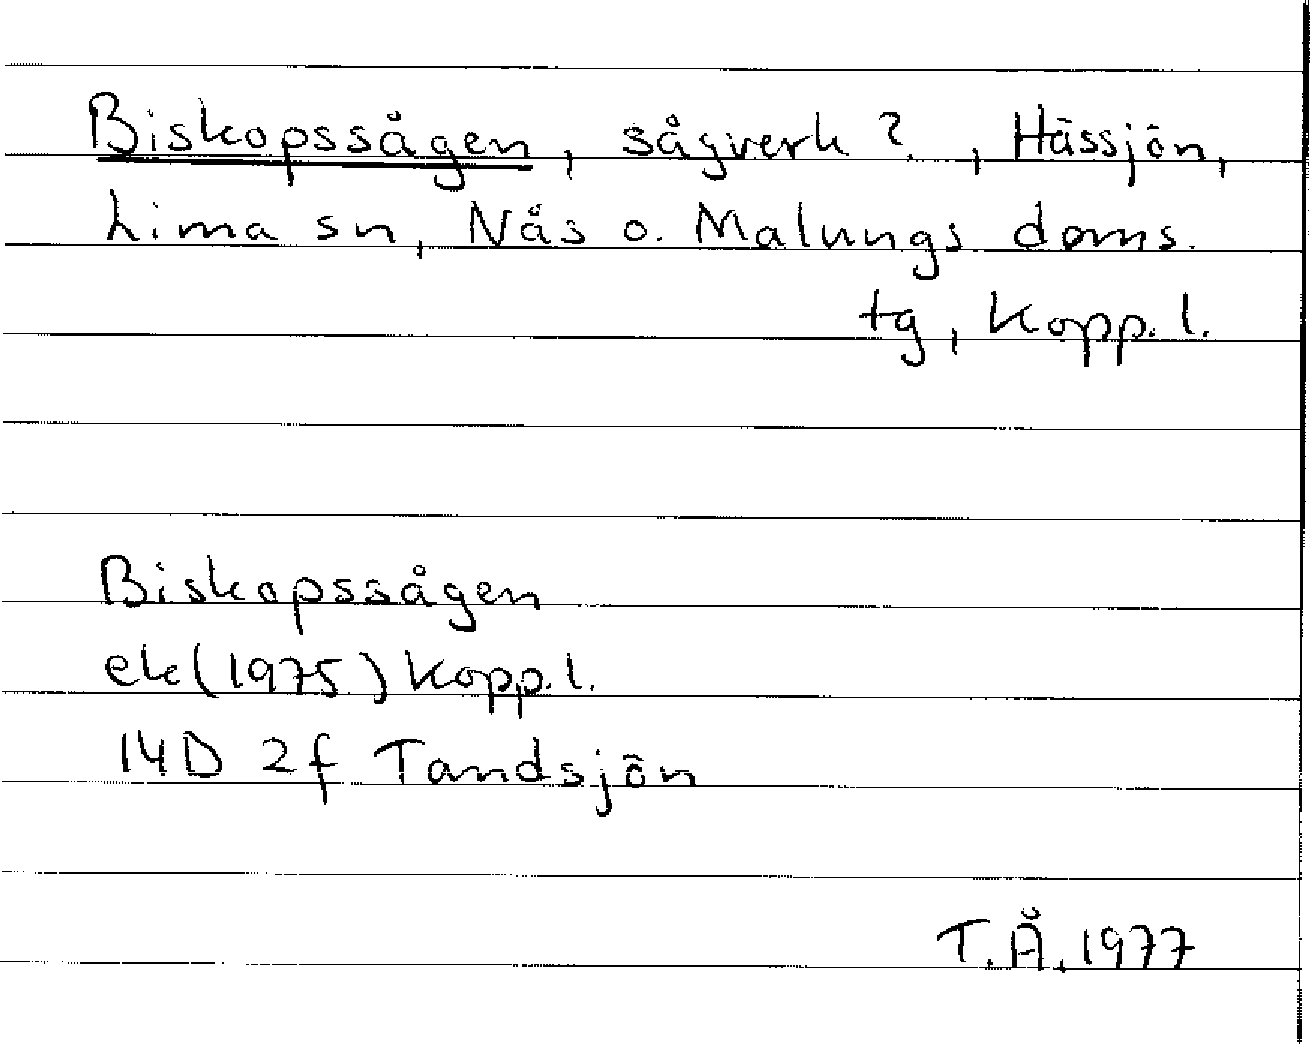 Biskopssågen, sågverk?, Hässjön,
Lima sn, Nås o. Malungs doms.
tg, Kopp.l.
Biskopssågen
ek(1975) Kopp.l.
14D 2f Tandsjön
T.Å.1977